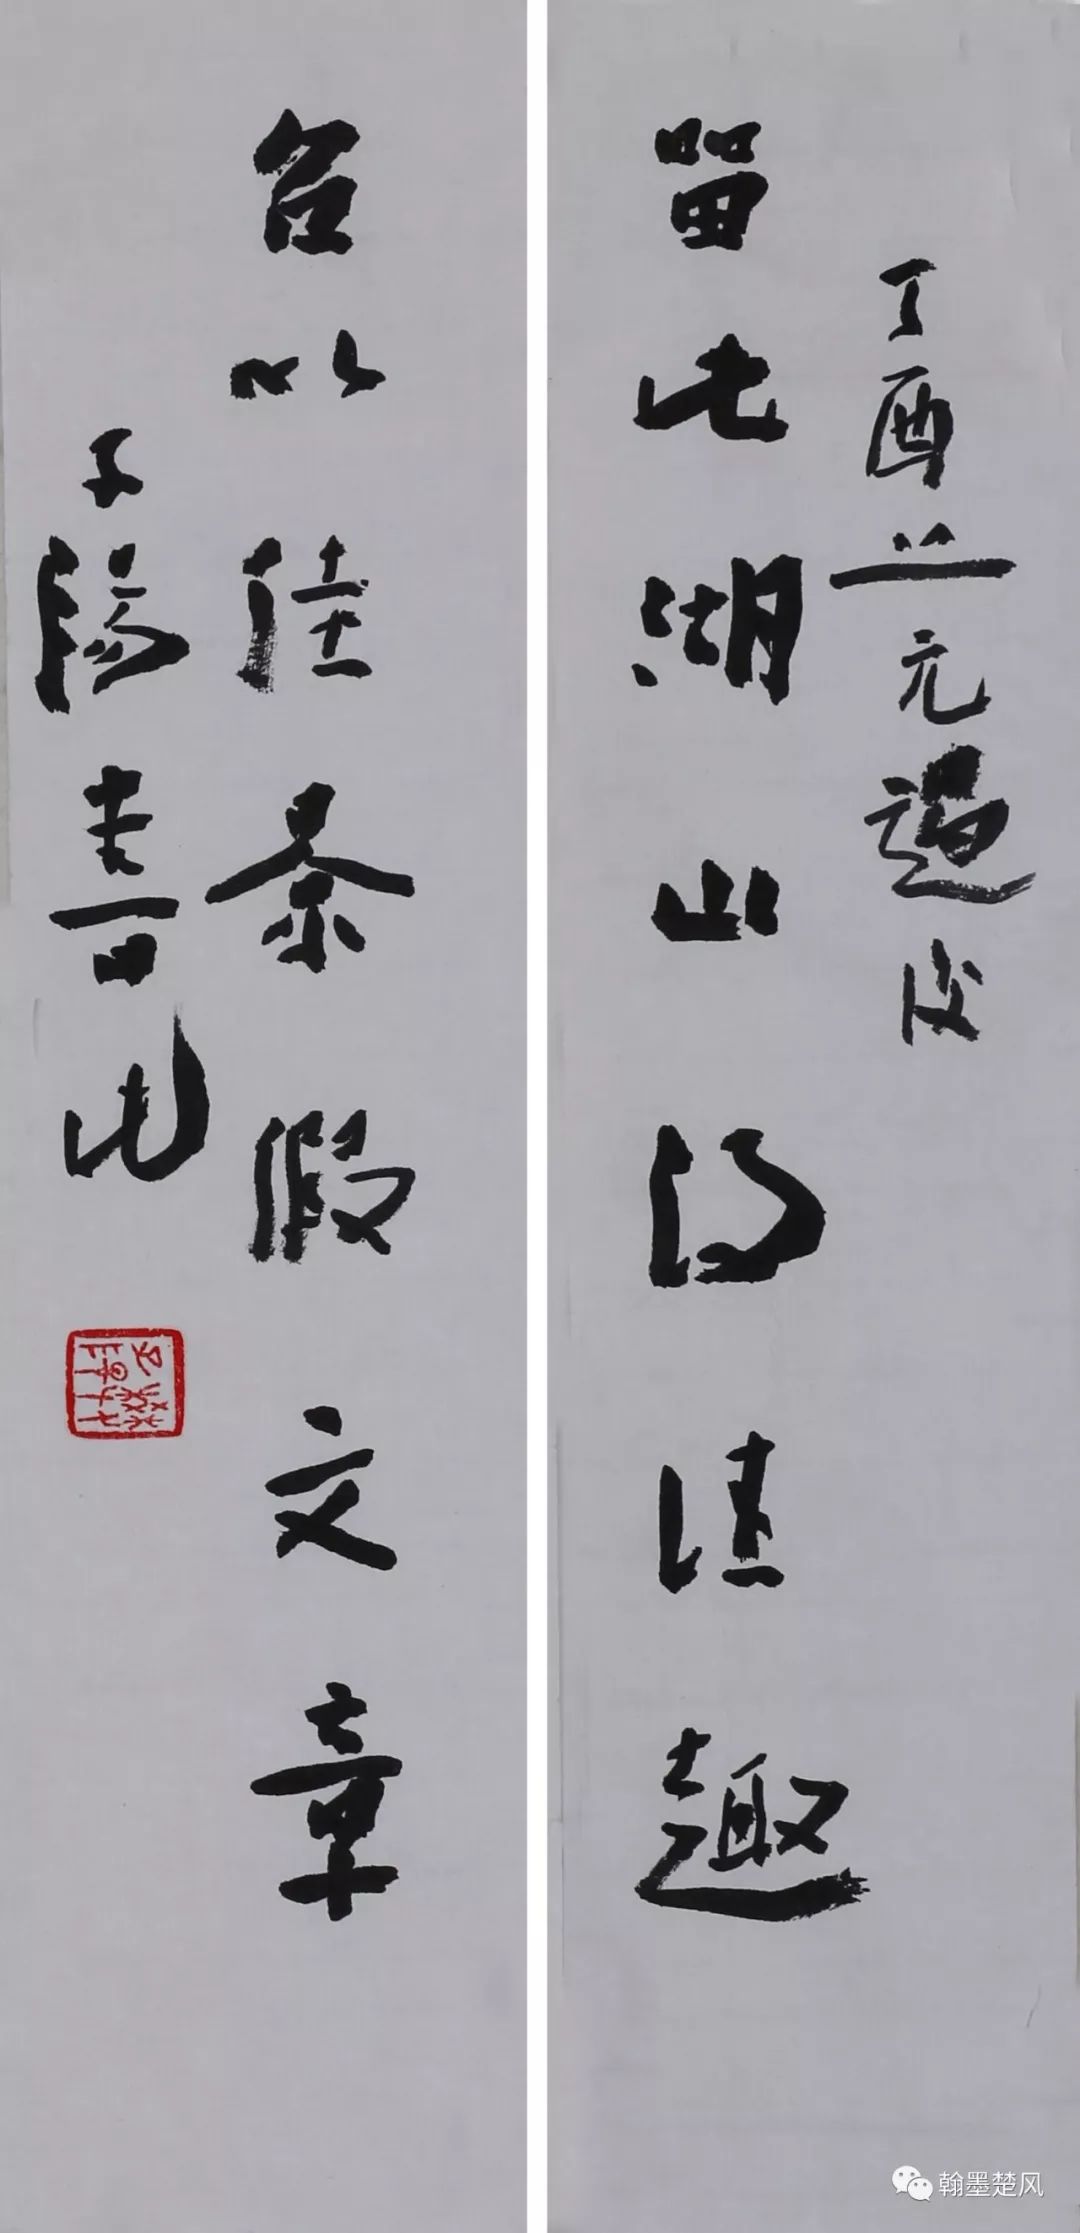 丁酉上元過後
留此湖山得佳趣
召以佳景假文章
子陽書
翰墨楚风